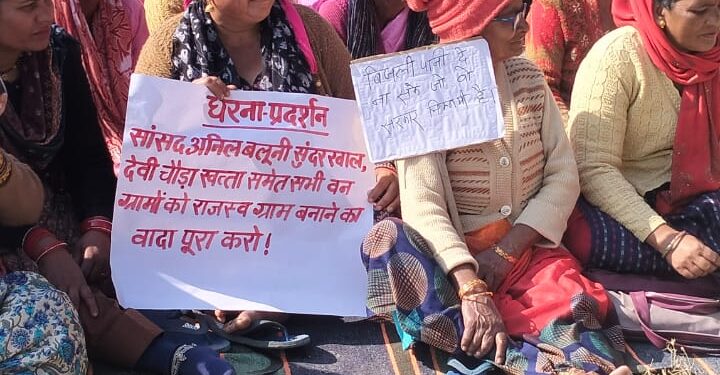 धरना-प्रदर्शन
सांसद अनिल बलूनी सुंदरखाल,
देवी चौड़ा खत्ता समेत सभी वन
ग्रामों को राजस्व ग्राम बनाने का
वादा पूरा करो!
बिजली पानी दे
ना सके जो वो
सरकार निकम्मी है